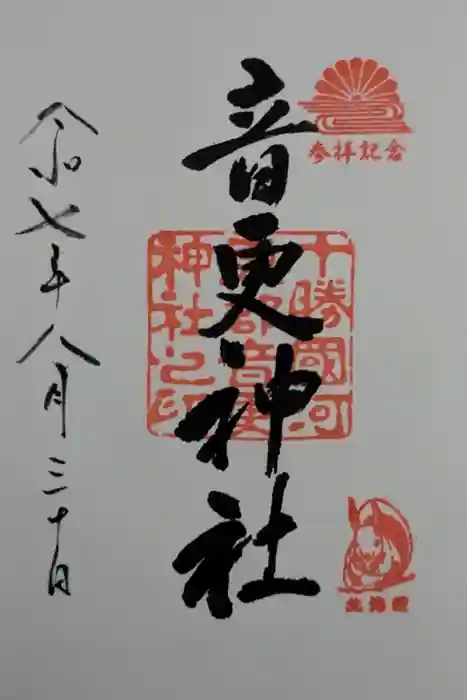 参拝記念
音更神社
十勝國河
東郡音更
神社之印
令和七年八月三十日